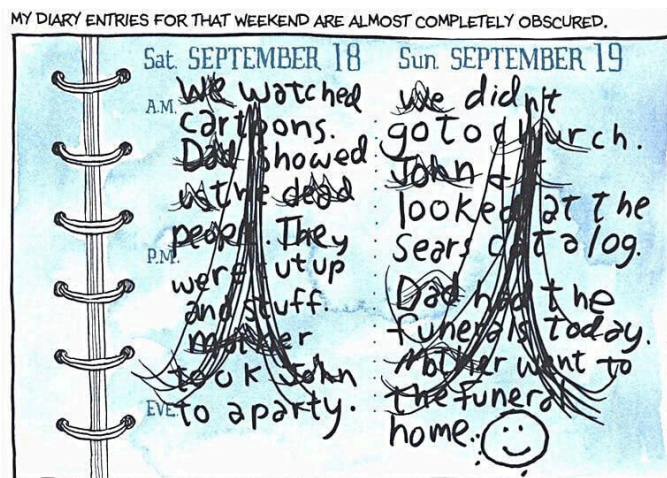 MY DIARY ENTRIES FOR THAT WEEKEND ARE ALMOST COMPLETELY OBSCURED.
Sat. SEPTEMBER 18
A.M.
We watched
cartoons.
Dad showed
us the dead
people. They
P.M.
were cut up
and stuff.
Mother
took John
EVE.
to a party.
Sun. SEPTEMBER 19
We didn't
go to church.
John &
looked at the
Sears catalog.
Dad had the
funerals today.
Mother went to
the funeral
home.